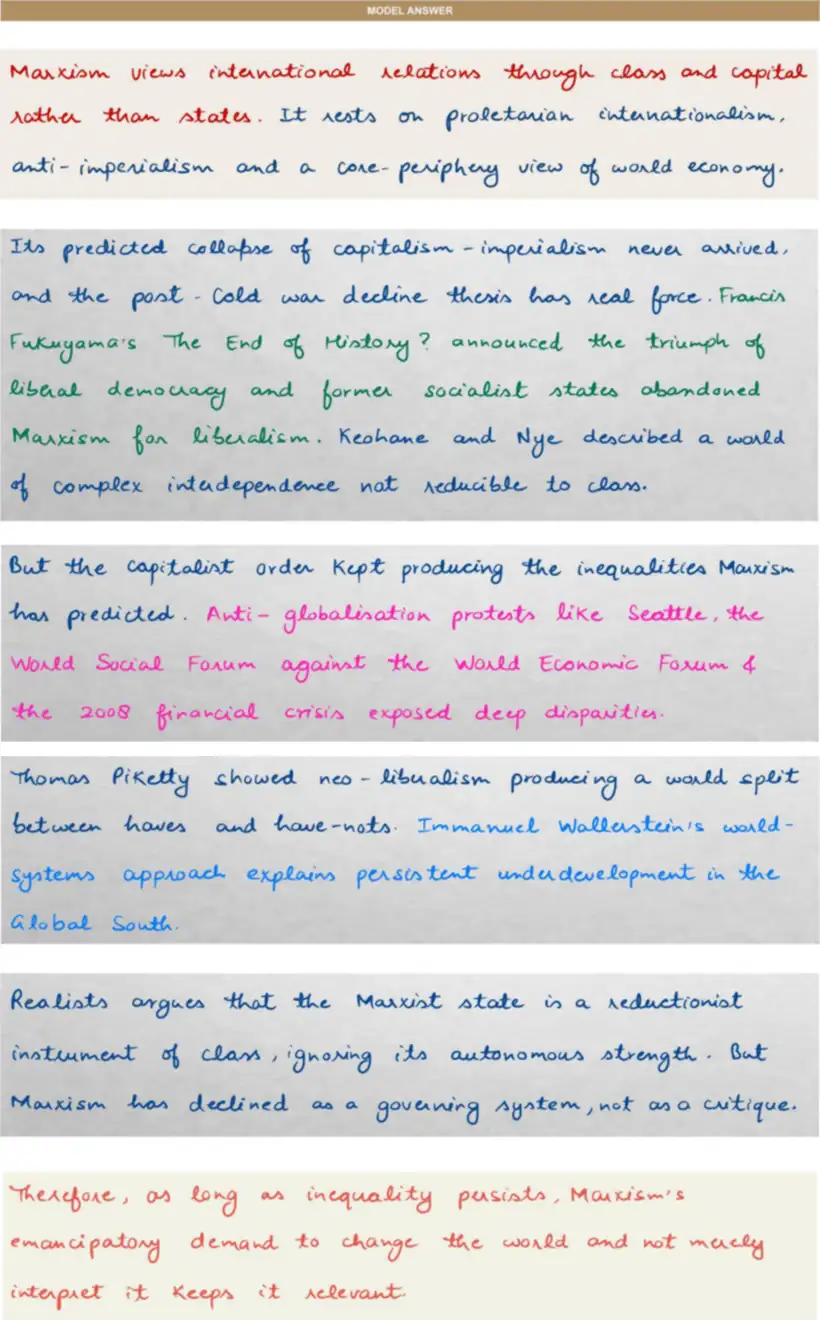 MODEL ANSWER
Marxism views international relations through class and capital
rather than states. It rests on proletarian internationalism,
anti-imperialism and a core-periphery view of world economy.
Its predicted collapse of capitalism-imperialism never arrived,
and the post-Cold war decline thesis has real force. Francis
Fukuyama's The End of History? announced the triumph of
liberal democracy and former socialist states abandoned
Marxism for liberalism. Keohane and Nye described a world
of complex interdependence not reducible to class.
But the capitalist order kept producing the inequalities Marxism
has predicted. Anti-globalisation protests like Seattle, the
World Social Forum against the World Economic Forum &
the 2008 financial crisis exposed deep disparities.
Thomas Piketty showed neo-liberalism producing a world split
between haves and have-nots. Immanuel Wallerstein's world-
systems approach explains persistent underdevelopment in the
Global South.
Realists argues that the Marxist state is a reductionist
instrument of class, ignoring its autonomous strength. But
Marxism has declined as a governing system, not as a critique.
Therefore, as long as inequality persists, Marxism's
emancipatory demand to change the world and not merely
interpret it keeps it relevant.